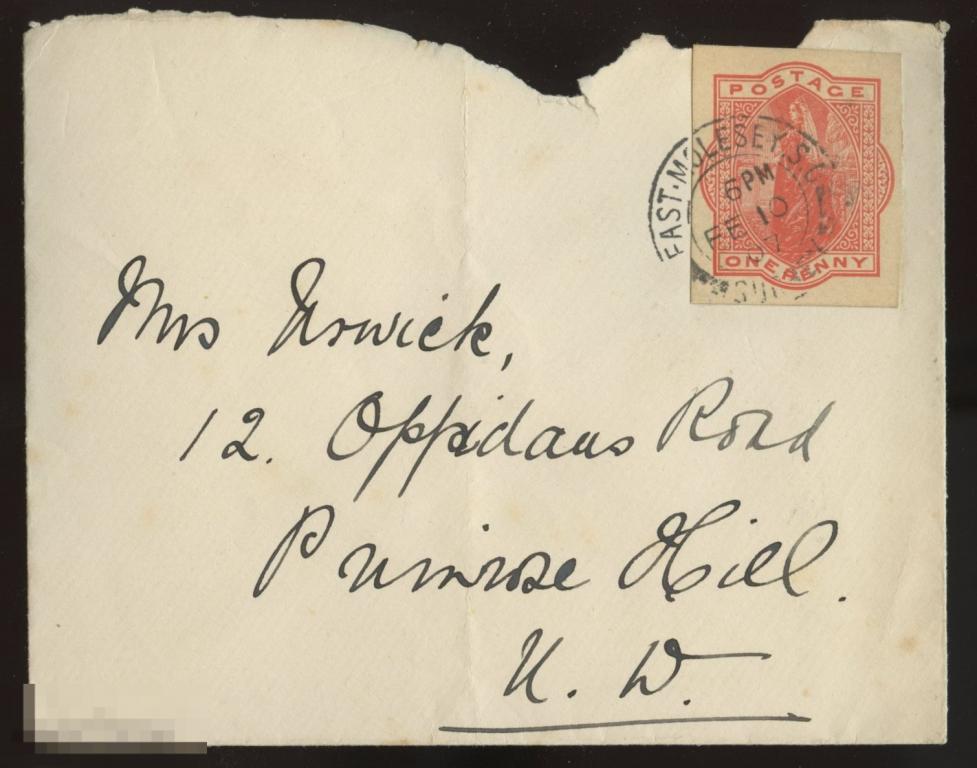 POSTAGE
EAST·MOLESEY. S.O
6 PM
FE 10
ONE PENNY
Mrs Urwick,
12. Oppidans Road
Primrose Hill.
N. W.